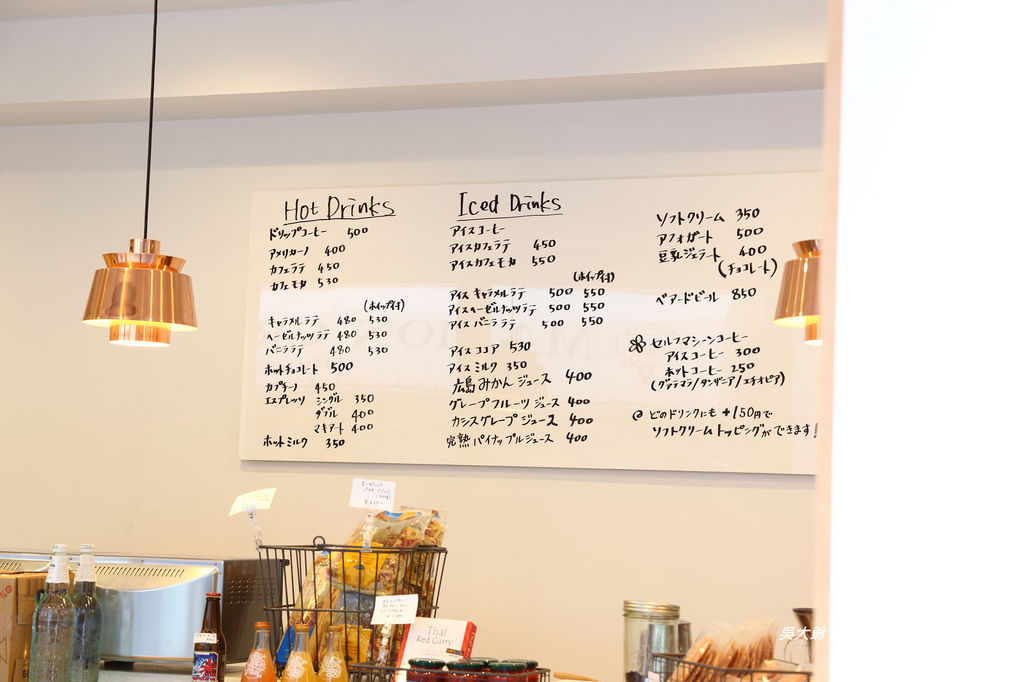 Hot Drinks
ドリップコーヒー 500
アメリカーノ 400
カフェラテ 450
カフェモカ 530
(ホイップ付)
キャラメルラテ 480 530
ヘーゼルナッツラテ 480 530
バニララテ 480 530
ホットチョコレート 500
カプチーノ 450
エスプレッソ シングル 350
ダブル 400
マキアート 400
ホットミルク 350
Iced Drinks
アイスコーヒー
アイスカフェラテ 450
アイスカフェモカ 550
(ホイップ付)
アイスキャラメルラテ 500 550
アイスヘーゼルナッツラテ 500 550
アイスバニララテ 500 550
アイスココア 530
アイスミルク 350
広島みかんジュース 400
グレープフルーツジュース 400
カシスグレープジュース 400
完熟パイナップルジュース 400
ソフトクリーム 350
アフォガート 500
豆乳ジェラート 400
(チョコレート)
ベアードビール 850
セルフマシーンコーヒー
アイスコーヒー 300
ホットコーヒー 250
(グァテマラ/タンザニア/エチオピア)
@ どのドリンクにも +150円で
ソフトクリームトッピングができます!
Thai
Red Curry
吳大爺